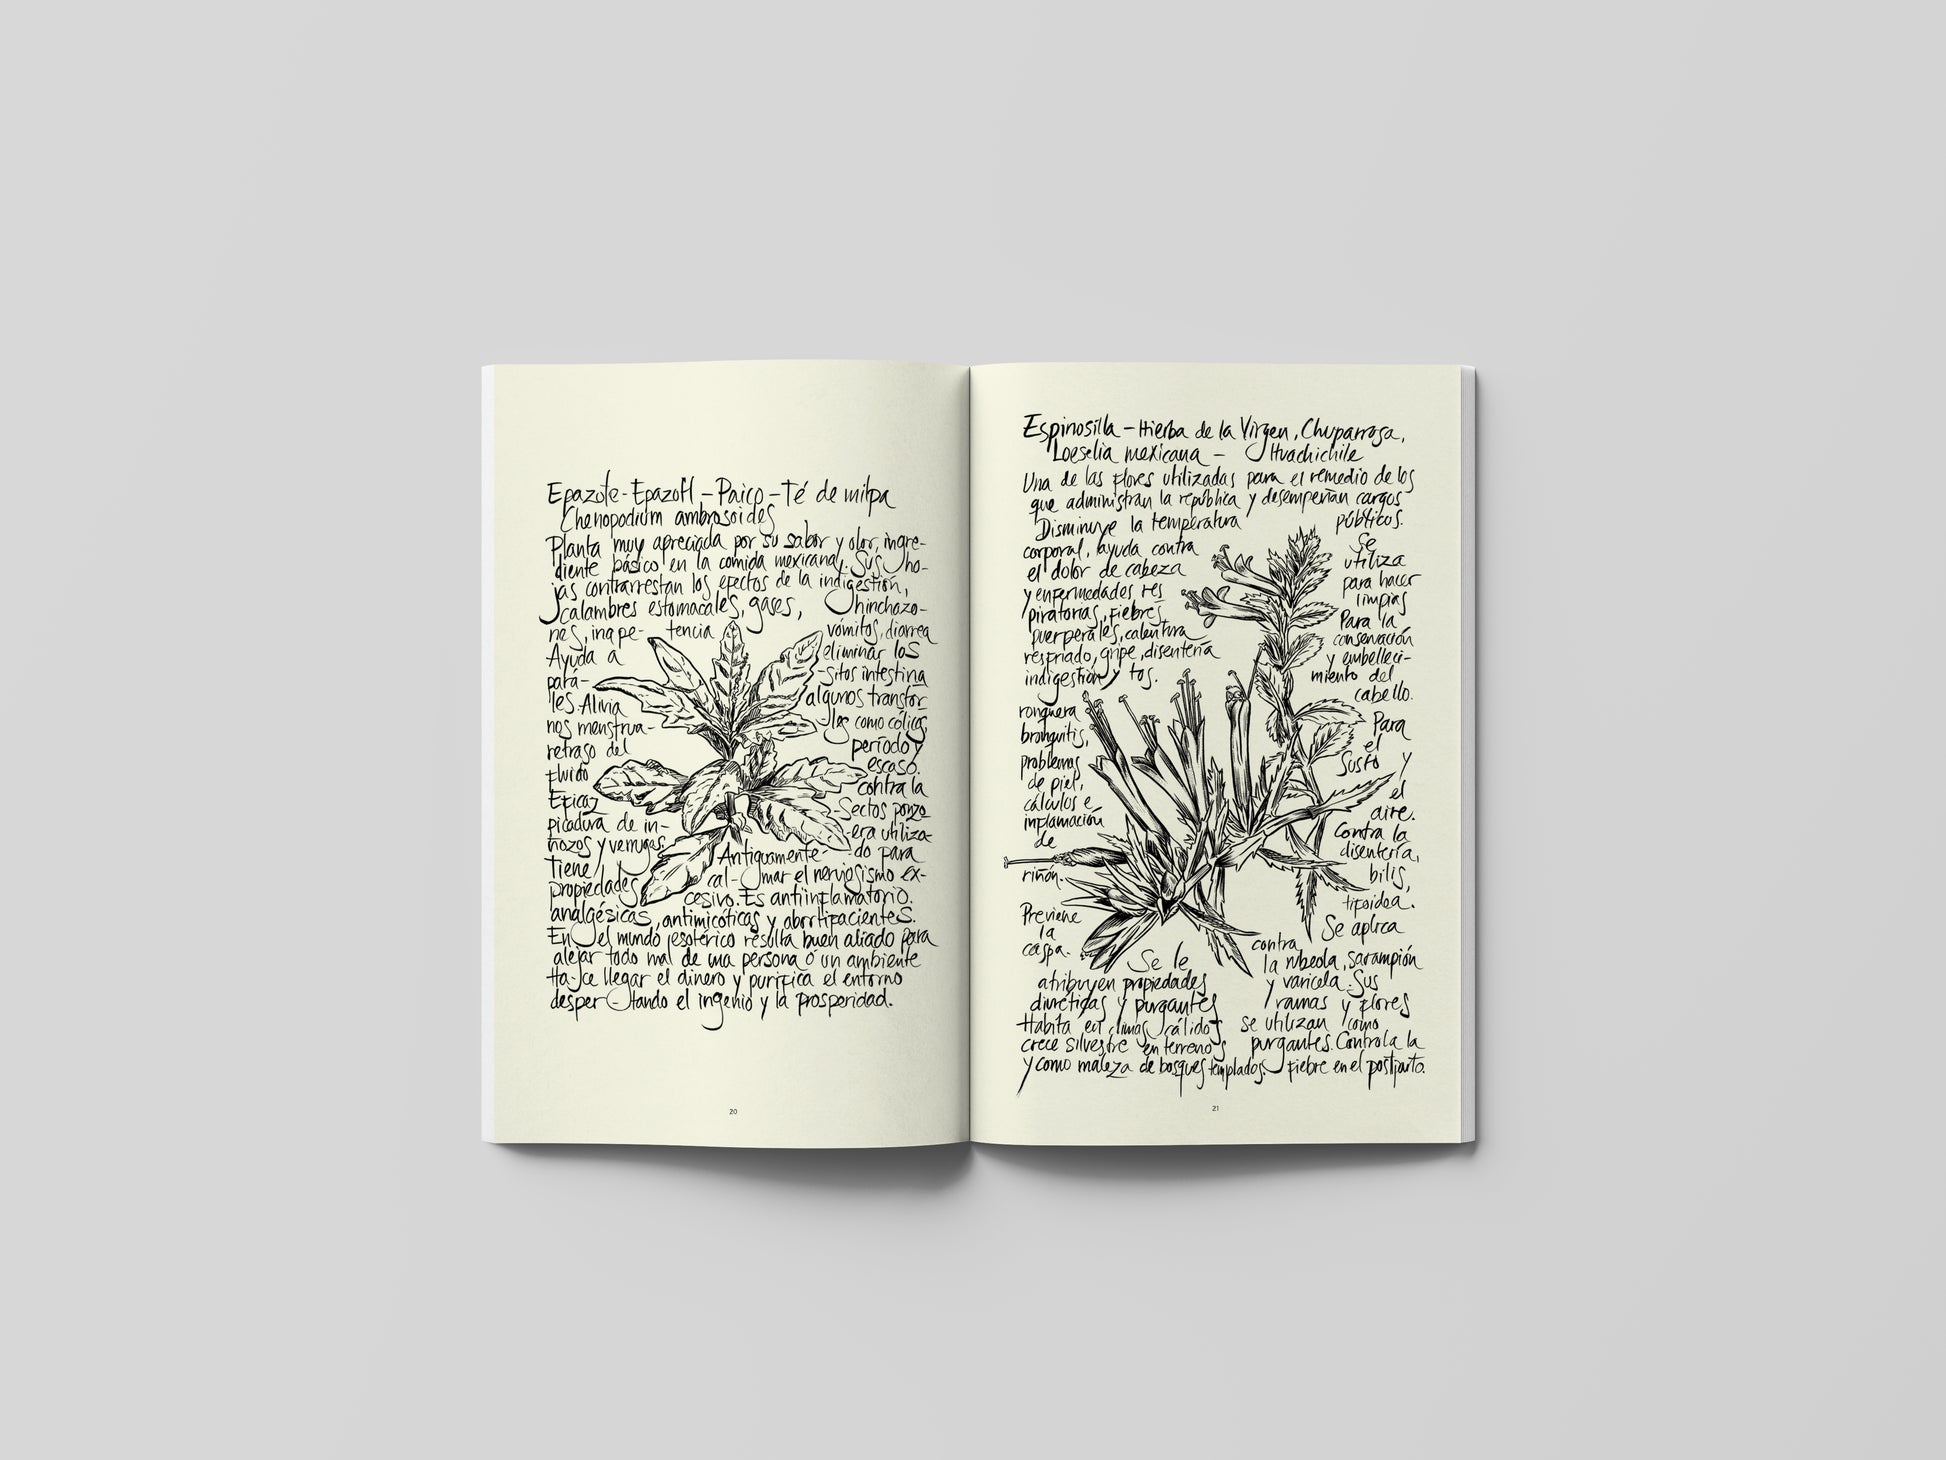 Epazote - Epazotl - Paico - Té de milpa
Chenopodium ambrosoides
Planta muy apreciada por su sabor y olor, ingre-
diente básico en la comida mexicana. Sus ho-
jas contrarrestan los efectos de la indigestión,
calambres estomacales, gases, hinchazo-
nes, inape- tencia vómitos, diarrea
Ayuda a eliminar los
pará- -sitos intestina
les. Alivia algunos transtor
nos menstrua- les como cólicos,
retraso del periodo y
fluido escaso.
Eficaz contra la
picadura de in- -sectos ponzo
ñozos y verrugas. -era utiliza-
Tiene Antiguamente do para
propiedades cal- mar el nerviosismo ex-
cesivo. Es antiinflamatorio.
analgésicas, antimicóticas y abortifacientes.
En el mundo esotérico resulta buen aliado para
alejar todo mal de una persona ó un ambiente
Ha-ce llegar el dinero y purifica el entorno
desper tando el ingenio y la prosperidad.
20
Espinosilla - Hierba de la Virgen, Chuparrosa,
Loeselia mexicana - Huachichile
Una de las flores utilizadas para el remedio de los
que administran la república y desempeñan cargos
públicos.
Disminuye la temperatura
corporal, ayuda contra
el dolor de cabeza
y enfermedades res
piratorias, fiebres
puerperales, calentura
resfriado, gripe, disentería
indigestión y tos.
ronquera
bronquitis,
problemas
de piel,
cálculos e
inflamación
de
riñón.
Previene
la
caspa.
Se le
atribuyen propiedades
diuréticas y purgantes
Habita en climas cálidos
crece silvestre en terrenos
y como maleza de bosques templados.
Se
utiliza
para hacer
limpias
Para la
conservación
y embelleci-
miento del
cabello.
Para
el
susto y
el
aire.
Contra la
disentería,
bilis,
tifoidea.
Se aplica
contra
la rubeola, sarampión
y varicela. Sus
ramas y flores
se utilizan como
purgantes. Controla la
fiebre en el postparto.
21